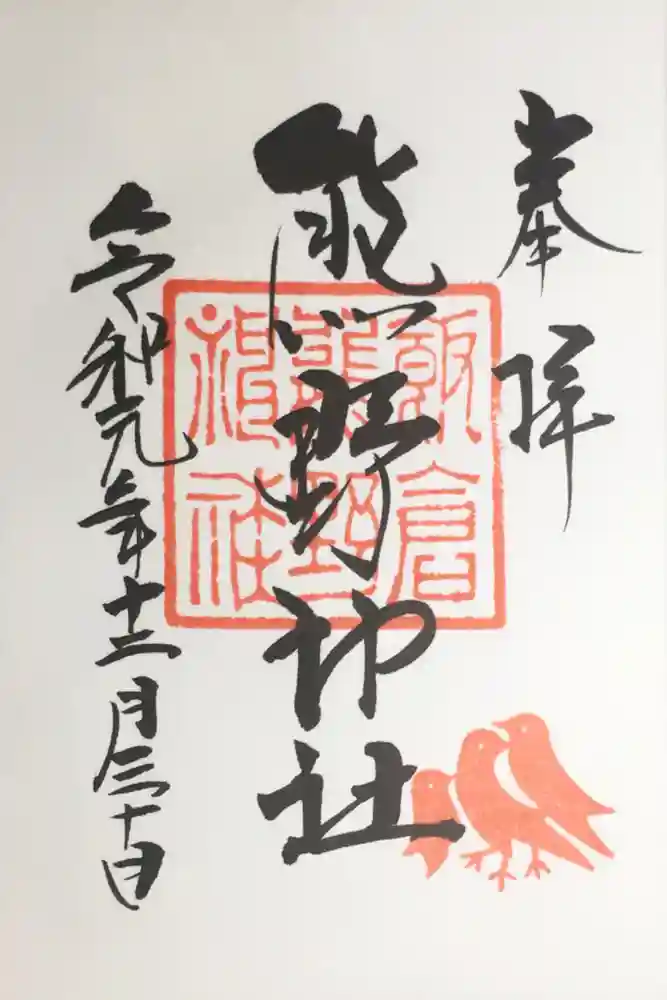 奉拝
熊野神社
飯倉
熊野
神社
令和元年十二月三十日